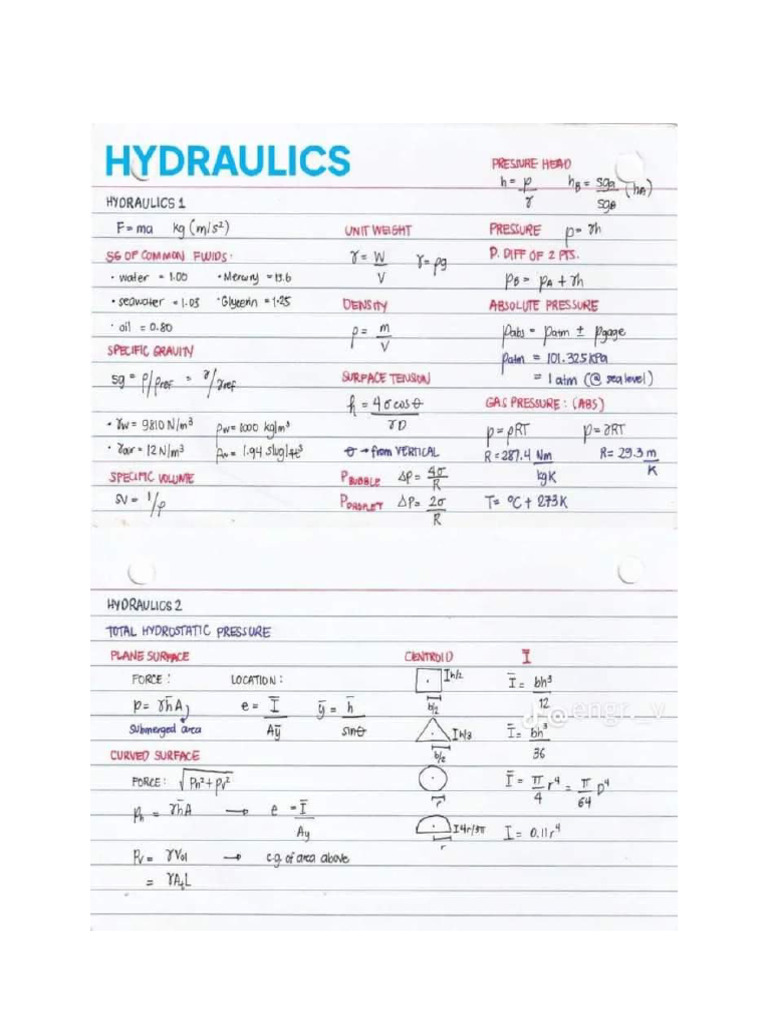 HYDRAULICS
HYDRAULICS 1
F = ma kg (m/s²)
SG OF COMMON FLUIDS:
• water = 1.00 • Mercury = 13.6
• seawater = 1.03 • Glycerin = 1.25
• oil = 0.80
SPECIFIC GRAVITY
sg = ρ/ρREF = γ/γREF
• γw = 9810 N/m³ ρw = 1000 kg/m³
• γair = 12 N/m³ ρw = 1.94 slug/ft³
SPECIFIC VOLUME
SV = 1/ρ
UNIT WEIGHT
γ = W/V γ = ρg
DENSITY
ρ = m/V
SURFACE TENSION
h = 4σcosθ/γD
θ → from VERTICAL
P BUBBLE Δp = 4σ/R
P DROPLET Δp = 2σ/R
PRESSURE HEAD
h = p/γ hB = sgA/sgB (hA)
PRESSURE p = γh
P. DIFF OF 2 PTS.
pB = pA + γh
ABSOLUTE PRESSURE
pabs = patm ± pgage
patm = 101.325 kPa
= 1 atm (@ sea level)
GAS PRESSURE: (ABS)
p = ρRT p = γRT
R = 287.4 Nm/kgK R = 29.3 m/K
T = °C + 273K
HYDRAULICS 2
TOTAL HYDROSTATIC PRESSURE
PLANE SURFACE
FORCE: LOCATION:
p = γh̄A e = Ī/Aȳ ȳ = h̄/sinθ
Submerged area
CURVED SURFACE
FORCE: √Ph² + Pv²
Ph = γh̄A → e = Ī/Ay
Pv = γVol → c.g. of area above
= γAL
CENTROID I
h/2 b/2 Ī = bh³/12
h/3 b/2 Ī = bh³/36
r Ī = π/4 r⁴ = π/64 D⁴
4r/3π r I = 0.11r⁴
@engr._v